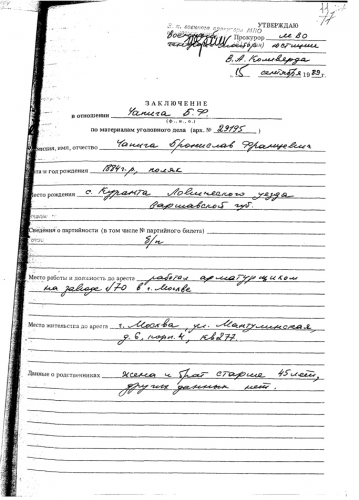 УТВЕРЖДАЮ
Прокурор МВО
юстиции
В.А. Коливерда
15 сентября 1989 г.
ЗАКЛЮЧЕНИЕ
в отношении Чанига Б.Ф.
(ф., и., о.)
по материалам уголовного дела (арх. № 29195)
имя, отчество Чанига Бронислав Францевич
и год рождения 1884 г.р., поляк
Место рождения с. Куранта Ловического уезда
Варшавской губ.
Сведения о партийности (в том числе № партийного билета)
б/п
Место работы и должность до ареста работал арматурщиком
на заводе №70 в г. Москве
Место жительства до ареста г. Москва, ул. Мантулинская,
д. 6, корп. 4, кв 277.
Данные о родственниках жена и брат старше 45 лет,
других данных нет.